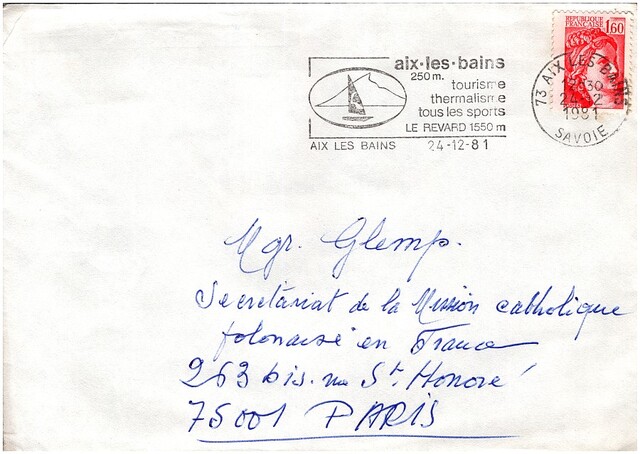 aix·les·bains
250m.
tourisme
thermalisme
tous les sports
LE REVARD 1550 m
AIX LES BAINS 24-12-81
REPUBLIQUE
FRANÇAISE
1,60
73 AIX LES BAINS
24-12
1981
SAVOIE
Mgr. Glemp.
Secrétariat de la Mission catholique
polonaise en France
263 bis. rue St. Honoré
75001 PARIS